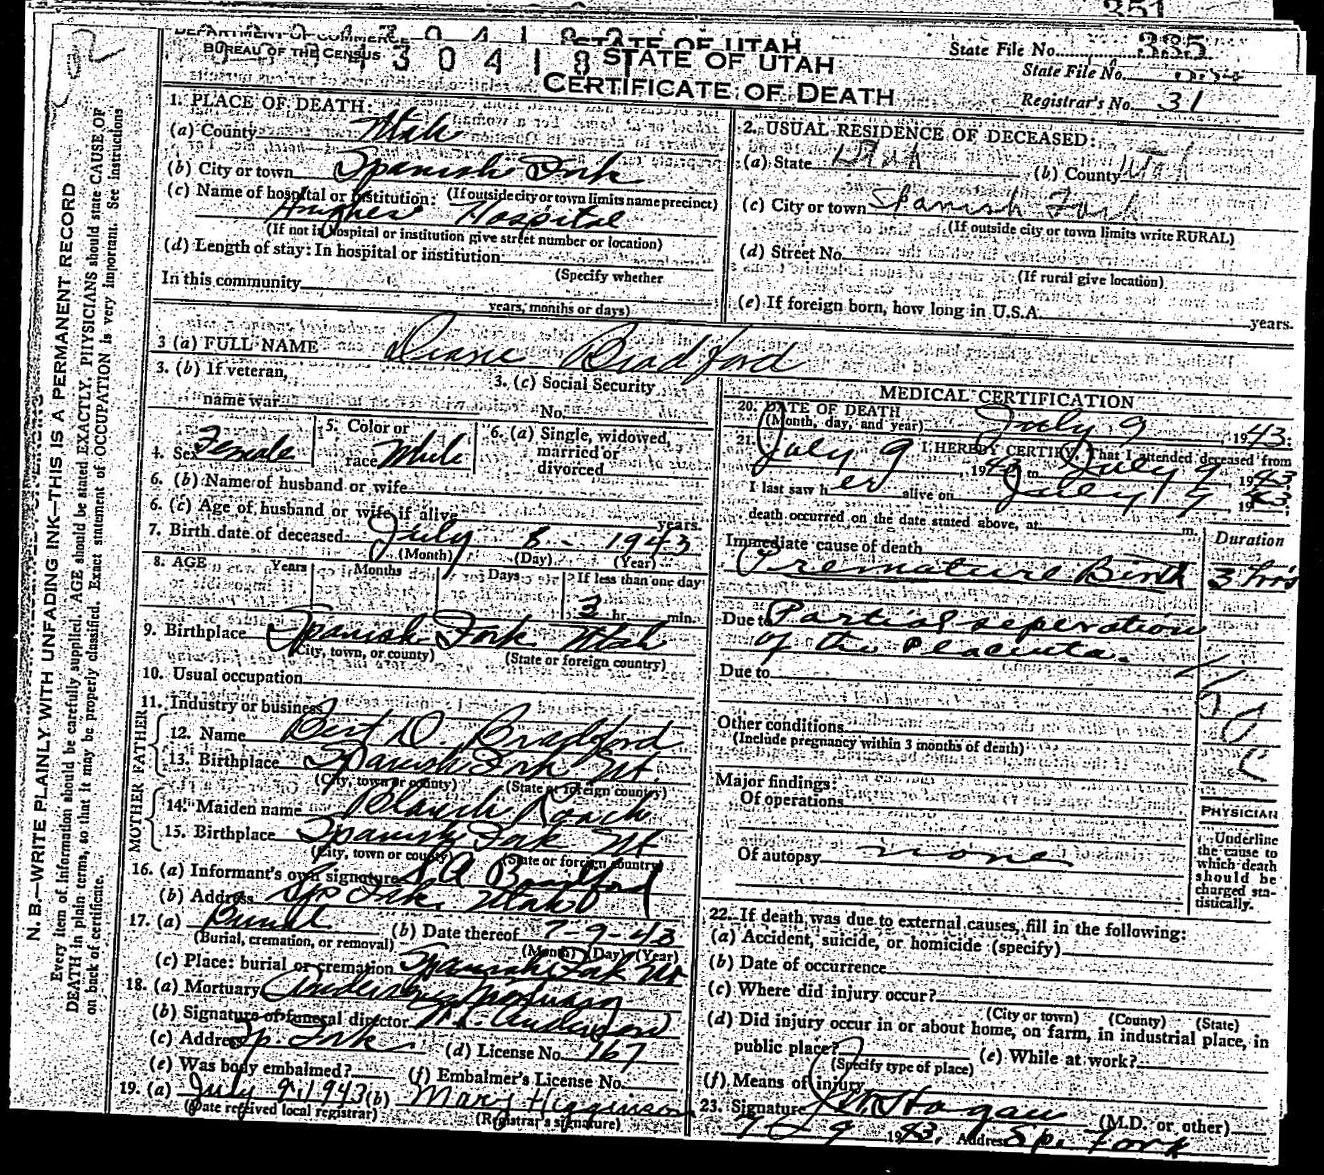 351
DEPARTMENT OF COMMERCE
STATE OF UTAH
State File No. 335
BUREAU OF THE CENSUS
304181
STATE OF UTAH
State File No. 334
CERTIFICATE OF DEATH
Registrar's No. 31
N. B.—WRITE PLAINLY WITH UNFADING INK—THIS IS A PERMANENT RECORD
Every item of information should be carefully supplied. AGE should be stated EXACTLY. PHYSICIANS should state CAUSE OF
DEATH in plain terms, so that it may be properly classified. Exact statement of OCCUPATION is very important. See instructions
on back of certificate.
1. PLACE OF DEATH:
(a) County Utah
(b) City or town Spanish Fork
(If outside city or town limits name precinct)
(c) Name of hospital or institution:
Hughes Hospital
(If not in hospital or institution give street number or location)
(d) Length of stay: In hospital or institution
(Specify whether
In this community
years, months or days)
2. USUAL RESIDENCE OF DECEASED:
(a) State Utah (b) County Utah
(c) City or town Spanish Fork
(If outside city or town limits write RURAL)
(d) Street No.
(If rural give location)
(e) If foreign born, how long in U.S.A. years.
3 (a) FULL NAME Diane Bradford
3. (b) If veteran, name war
3. (c) Social Security No.
4. Sex Female
5. Color or race White
6. (a) Single, widowed, married or divorced
6. (b) Name of husband or wife
6. (c) Age of husband or wife if alive years.
7. Birth date of deceased July 8 - 1943
(Month) (Day) (Year)
8. AGE Years Months Days If less than one day
3 hr. min.
9. Birthplace Spanish Fork Utah
(City, town, or county) (State or foreign country)
10. Usual occupation
11. Industry or business
FATHER
12. Name Bert D. Bradford
13. Birthplace Spanish Fork Ut.
(City, town or county) (State or foreign country)
MOTHER
14. Maiden name Blanch Roach
15. Birthplace Spanish Fork Ut
(City, town or county) (State or foreign country)
16. (a) Informant's own signature Bradford
(b) Address Sp Fork Utah
17. (a) Burial (b) Date thereof 7-9-43
(Burial, cremation, or removal) (Month) (Day) (Year)
(c) Place: burial or cremation Spanish Fork Ut
18. (a) Mortuary Anderson Mortuary
(b) Signature of funeral director Anderson
(c) Address Sp. Fork (d) License No. 167
(e) Was body embalmed? (f) Embalmer's License No.
19. (a) July 9, 1943 (b) Mary Higginson
(Date received local registrar) (Registrar's signature)
MEDICAL CERTIFICATION
20. DATE OF DEATH
(Month, day, and year) July 9 1943.
21. I HEREBY CERTIFY, That I attended deceased from
July 9, 1943 to July 9, 1943
I last saw her alive on July 9 1943.
death occurred on the date stated above, at m.
Duration
Immediate cause of death
Premature Birth 3 hrs
Due to Partial seperation
of the Placenta.
Due to
Other conditions
(Include pregnancy within 3 months of death)
Major findings:
Of operations
Of autopsy none
PHYSICIAN
Underline
the cause to
which death
should be
charged sta-
tistically.
22. If death was due to external causes, fill in the following:
(a) Accident, suicide, or homicide (specify)
(b) Date of occurrence
(c) Where did injury occur?
(City or town) (County) (State)
(d) Did injury occur in or about home, on farm, in industrial place, in
public place? (e) While at work?
(Specify type of place)
(f) Means of injury
23. Signature Hogan (M.D. or other)
7-9 1943, Address Sp. Fork